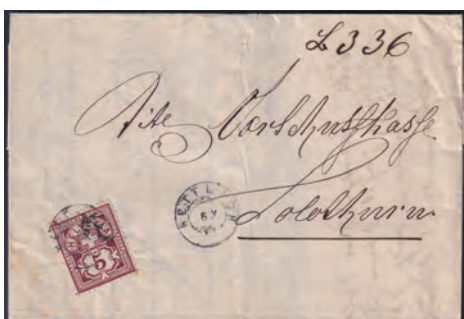 L 336
Tite Vorschusskasse
Solothurn
HELVETIA
5